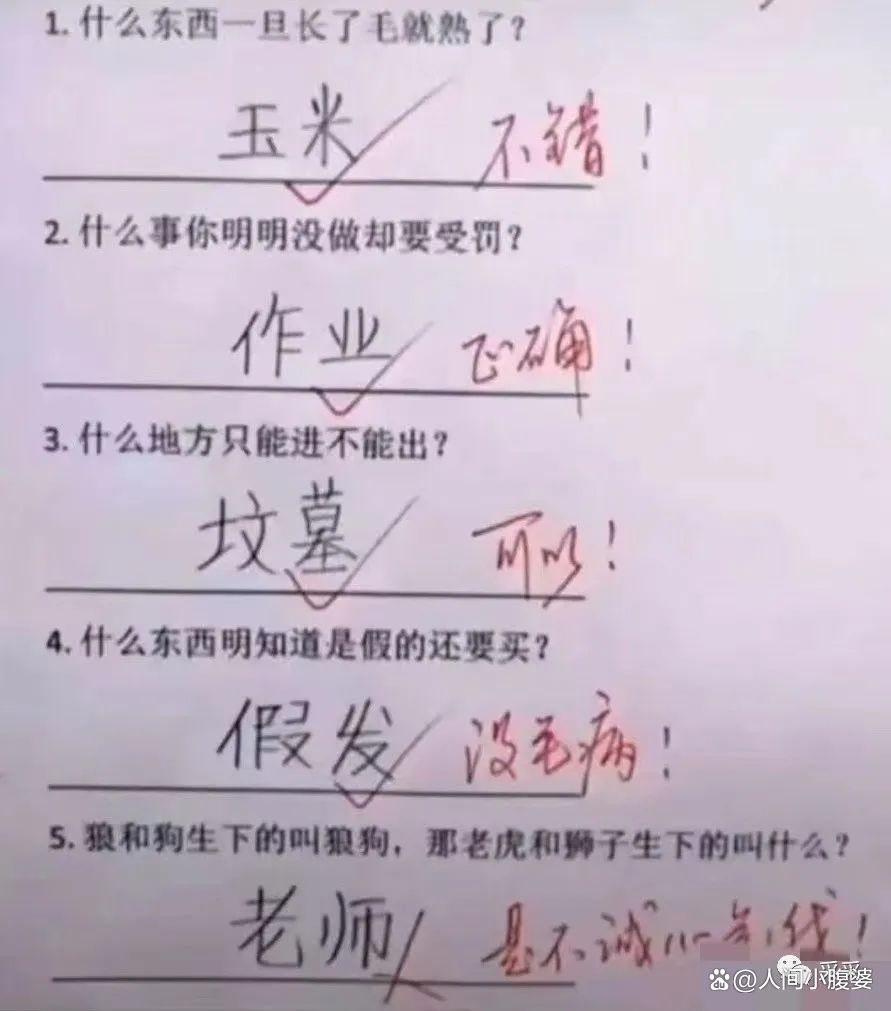 1. 什么东西一旦长了毛就熟了？
玉米 不错！
2. 什么事你明明没做却要受罚？
作业 正确！
3. 什么地方只能进不能出？
坟墓 可以！
4. 什么东西明知道是假的还要买？
假发 没毛病！
5. 狼和狗生下的叫狼狗，那老虎和狮子生下的叫什么？
老师 是不诚心气我！
采采
@人间小腹婆